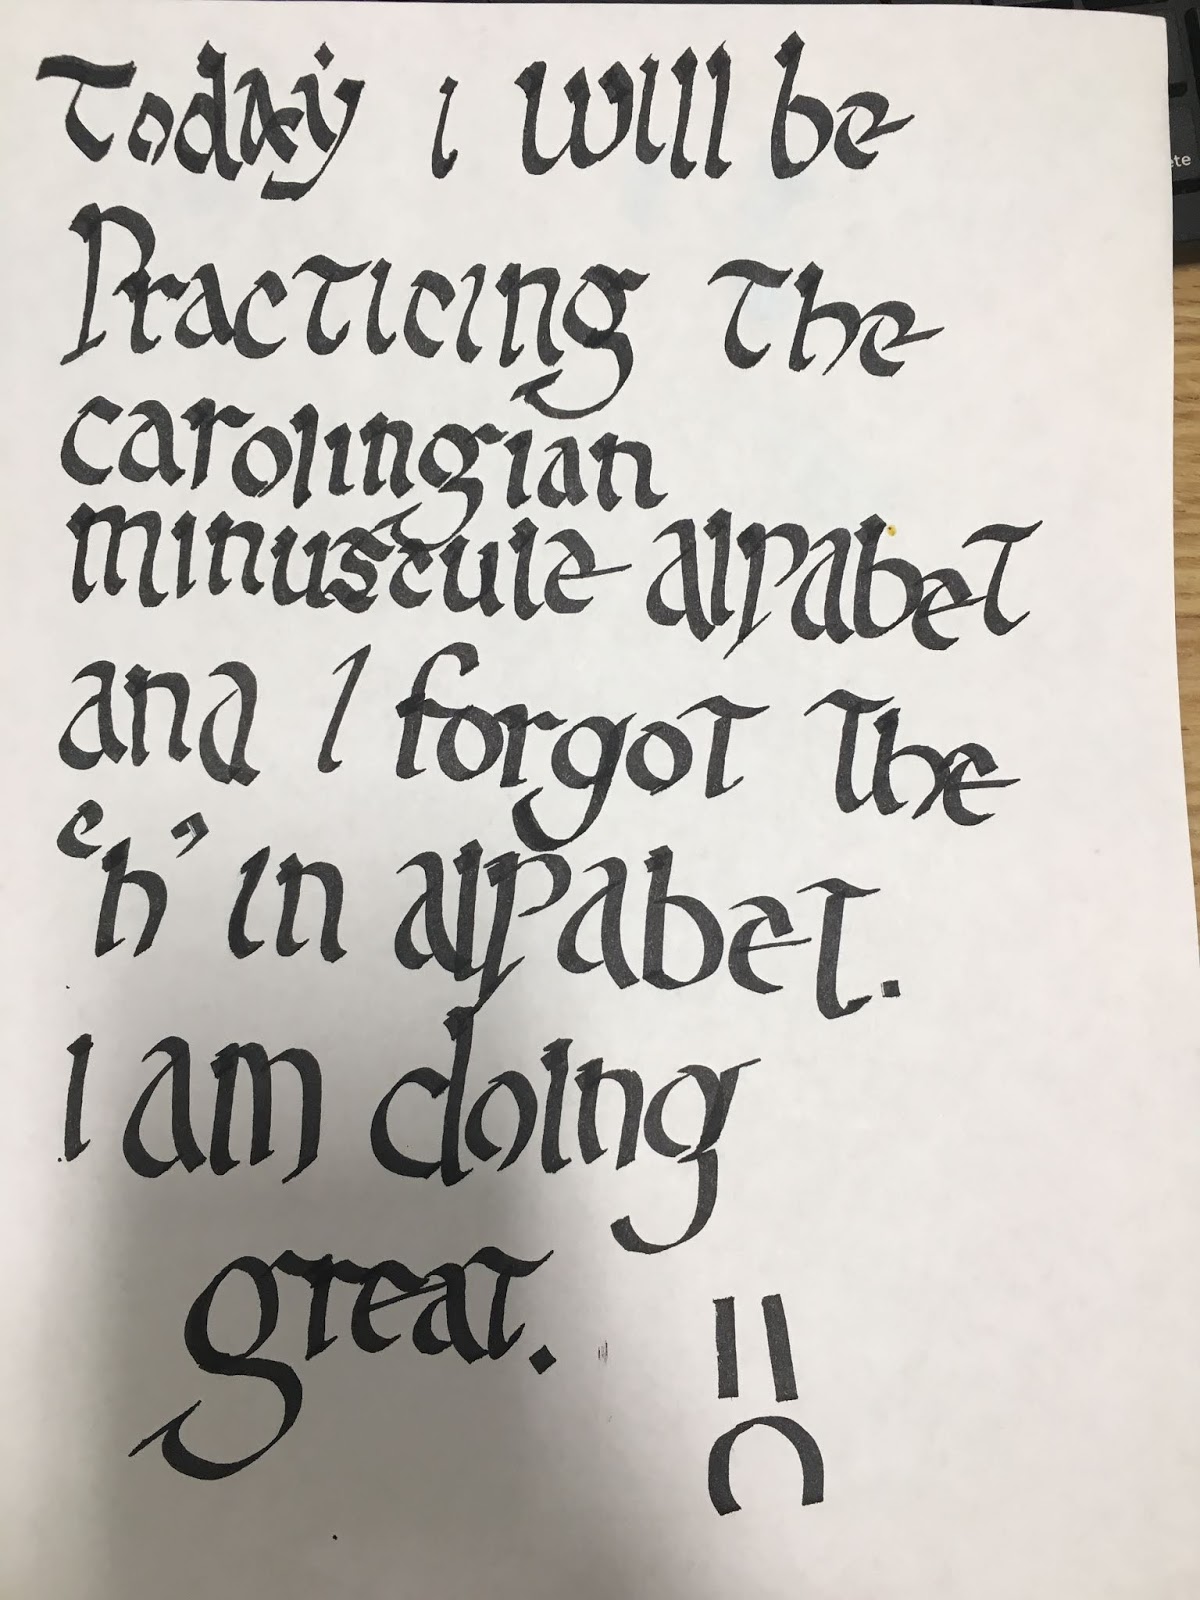 Today i will be
Practicing the
carolingian
minuscule alpabet
and I forgot the
'h' in alpabet.
I am doing
great.